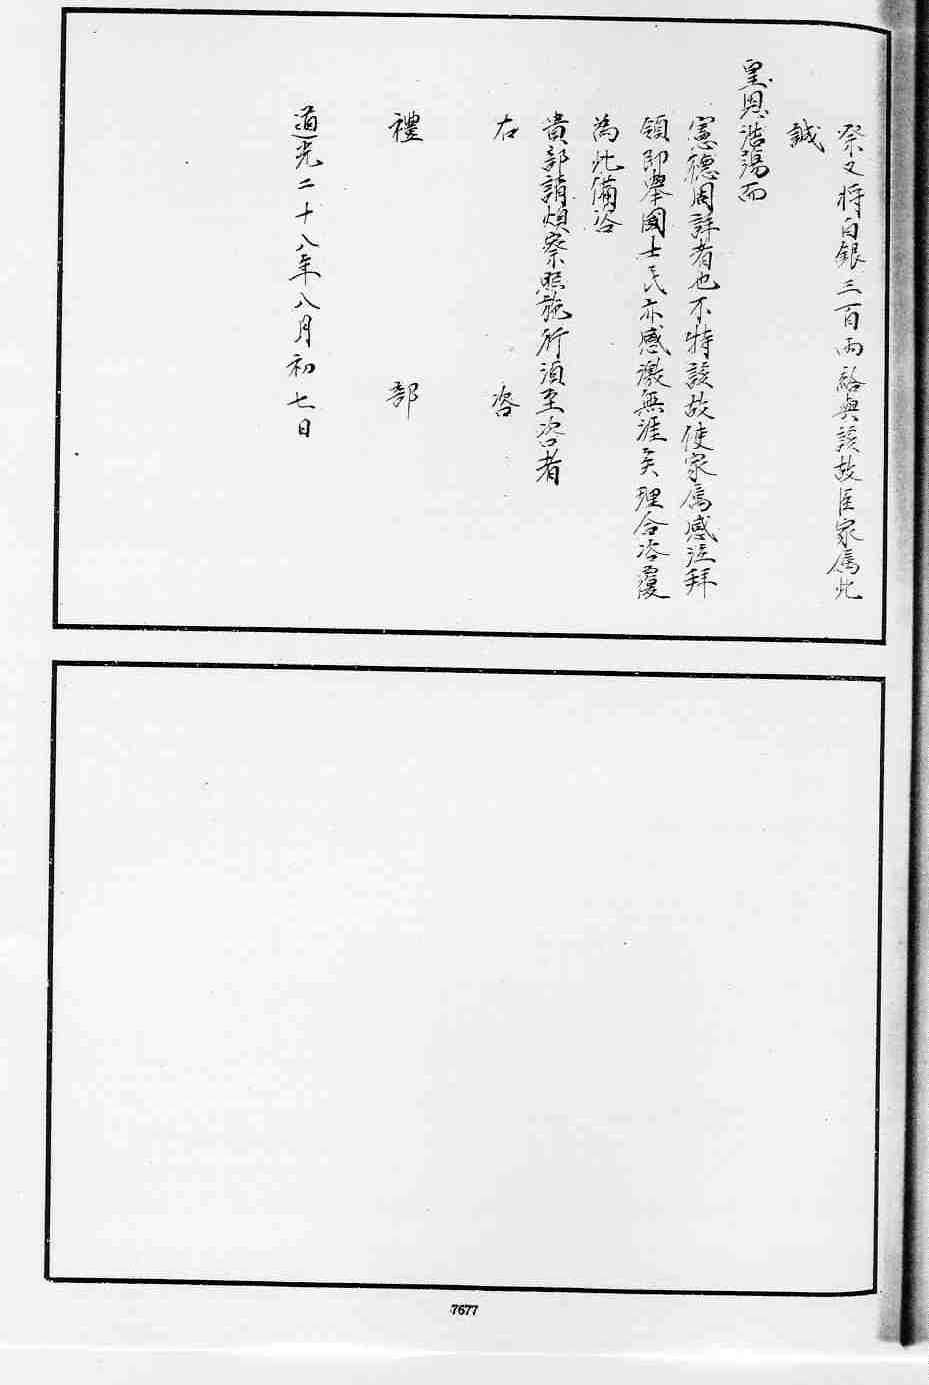 祭文將白銀三百兩給與該故臣家属此
誠
皇恩浩蕩而
憲德周詳者也不特該故使家属感泣拜
領即舉國士民亦感激無涯矣理合咨覆
為此備咨
貴部請煩察照施行須至咨者
右 咨
禮 部
道光二十八年八月初七日
7677